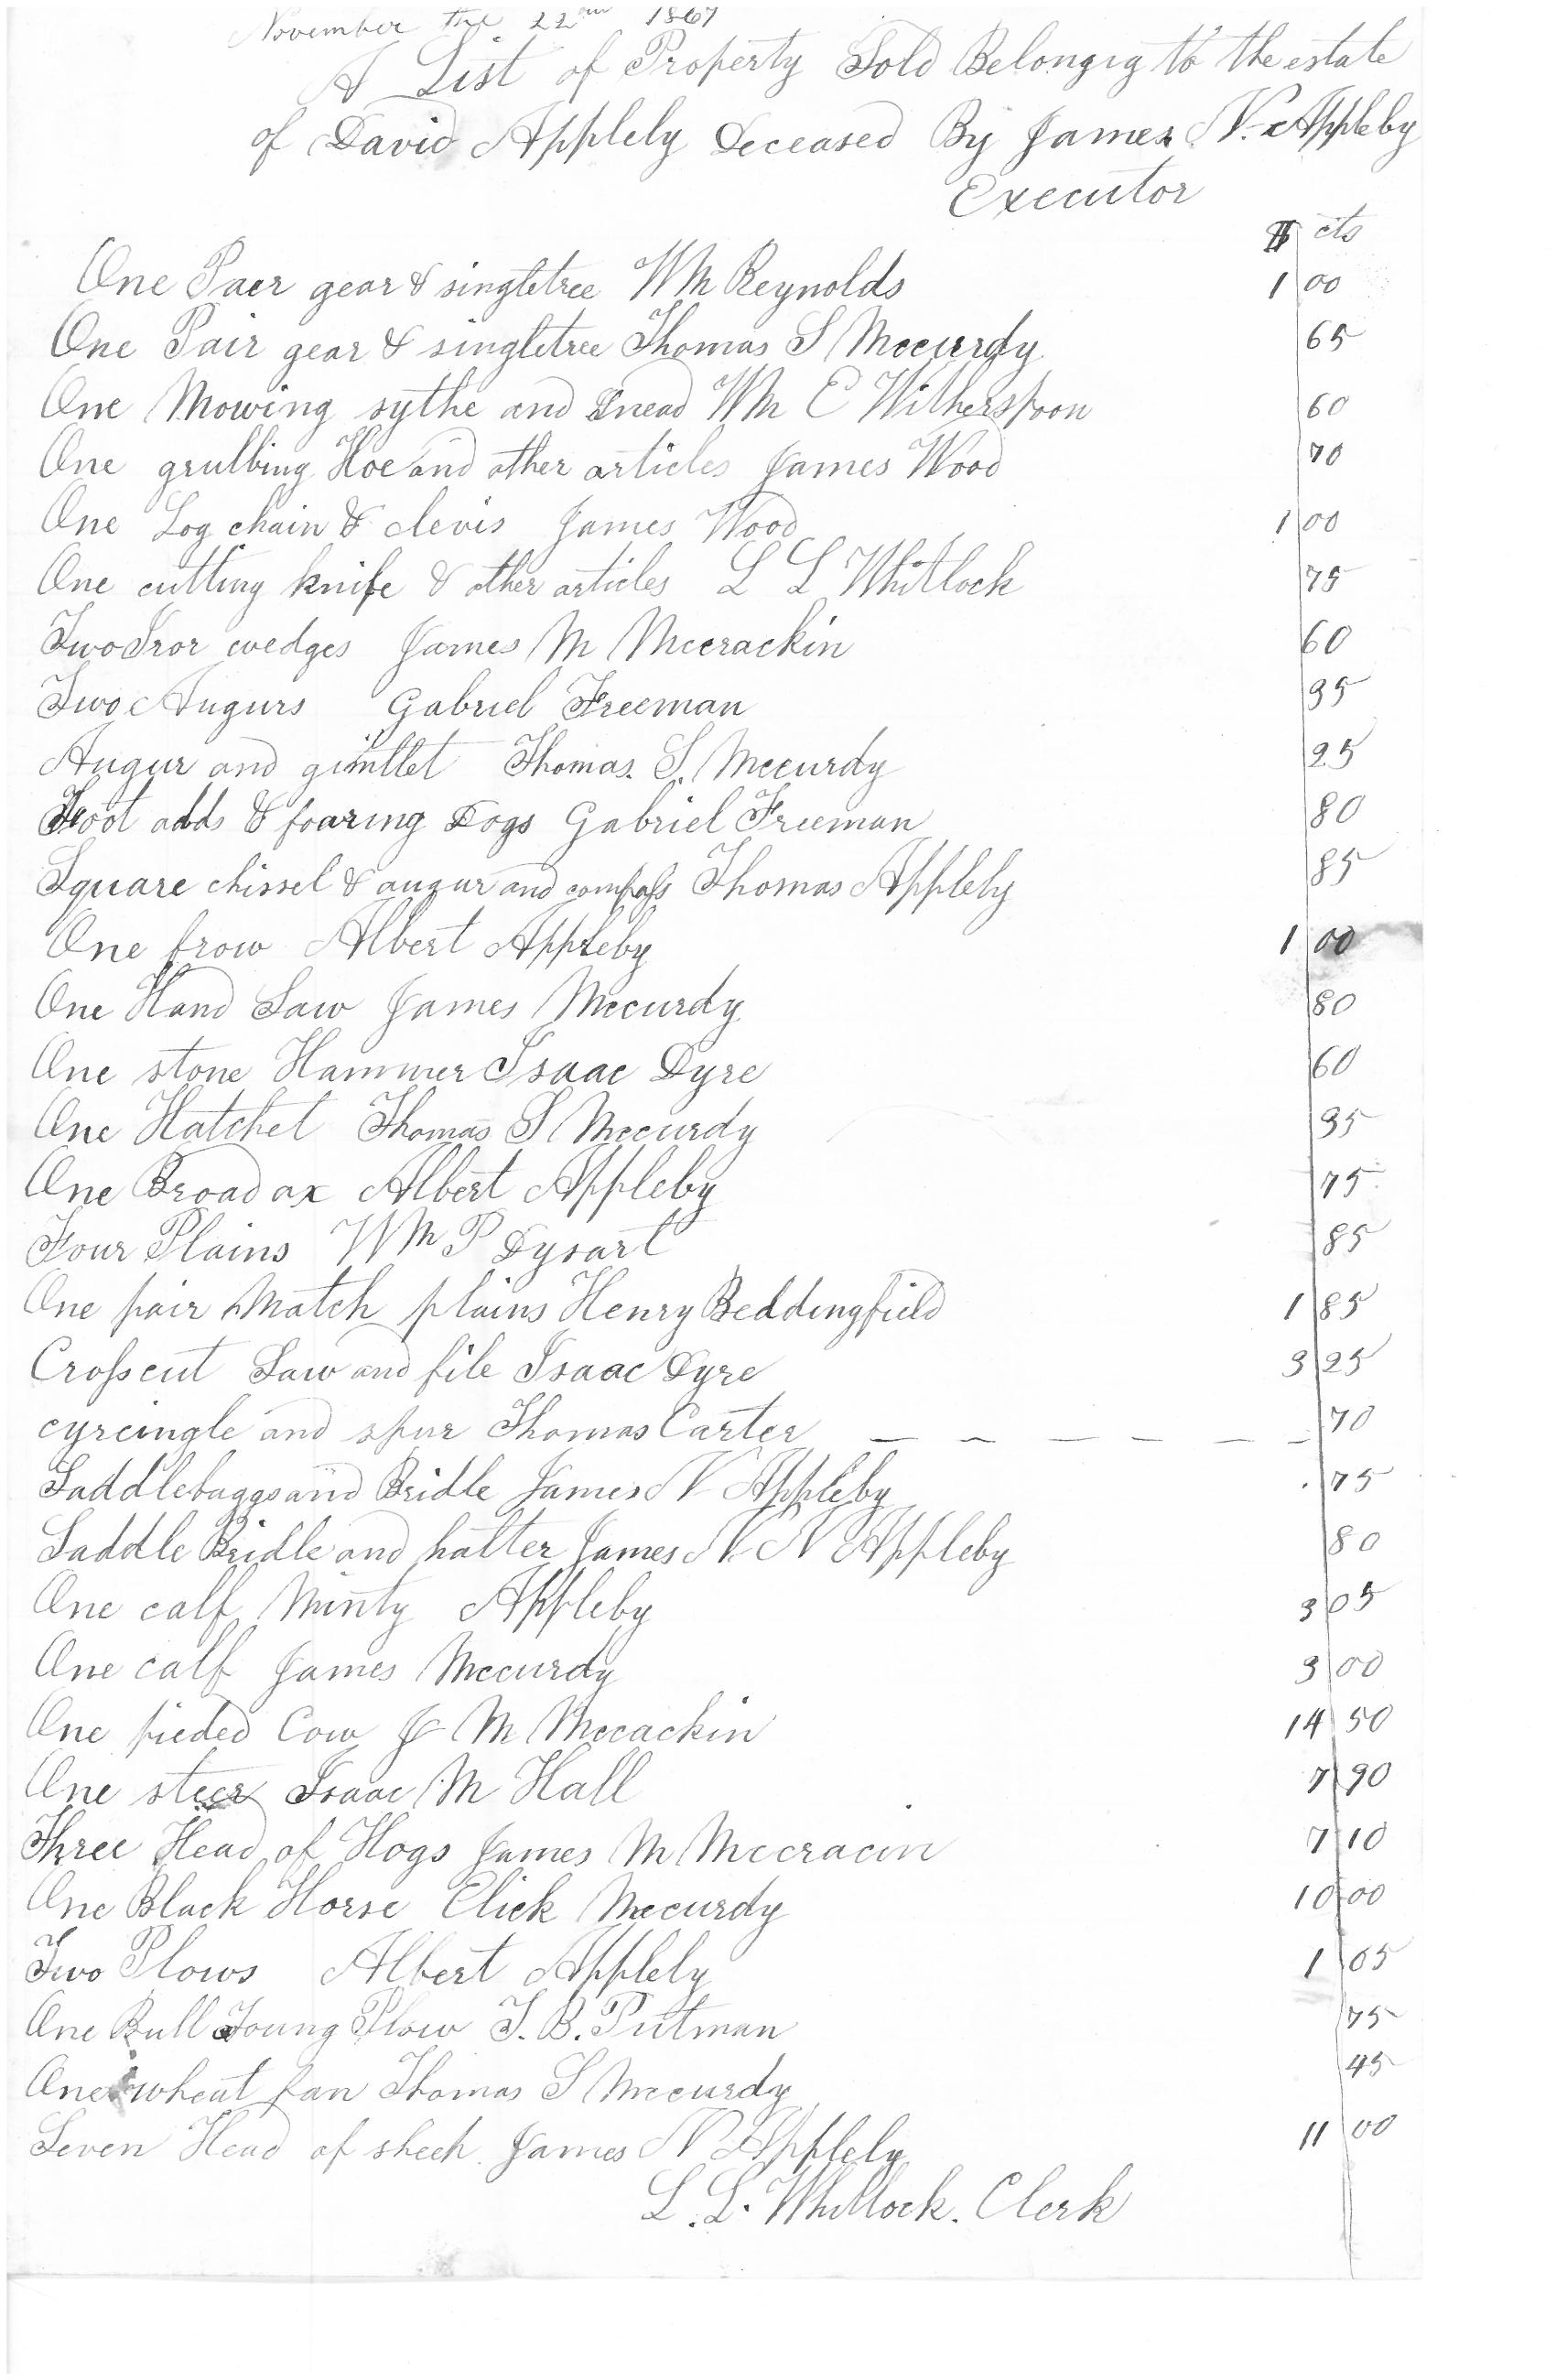 November the 22nd 1867
A List of Property Sold Belongig to the estate
of David Appleby Deceased By James N. Appleby
Executor
$ cts
One Paer gear & singletree Wm Reynolds 1 00
One Pair gear & singletree Thomas S Mccurdy 65
One Mowing sythe and Snead Wm E Witherspoon 60
One grubbing Hoe and other articles James Wood 70
One Log chain & clevis James Wood 1 00
One cutting knife & other articles L L Whitlock 75
Two Iror wedges James M Mccrackin 60
Two Augurs Gabriel Freeman 35
Augur and gimllet Thomas. S. Mccurdy 25
Foot adds & foaring Dogs Gabriel Freeman 80
Square chissel & augur and compass Thomas Appleby 85
One frow Albert Appleby 1 00
One Hand Saw James Mccurdy 80
One stone Hammer Isaac Dyre 60
One Hatchet Thomas S Mccurdy 35
One Broad ax Albert Appleby 75
Four Plains Wm P Dysart 85
One pair Match plains Henry Beddingfield 1 85
Crosscut Saw and file Isaac Dyre 3 25
cyrcingle and spur Thomas Carter — — — — — — 70
Saddlebaggs and Bridle James N Appleby 75
Saddle Bridle and halter James N. N Appleby 80
One calf Minty Appleby 3 05
One calf James Mccurdy 3 00
One pieded Cow J M Mccackin 14 50
One steer Isaac M Hall 7 90
Three Head of Hogs James M Mccracin 7 10
One Black Horse Elick Mccurdy 10 00
Two Plows Albert Appleby 1 05
One Bull Toung Plow T. B. Putman 75
One wheat fan Thomas S Mccurdy 45
Seven Head of sheeh. James N Appleby 11 00
L. L. Whitlock. Clerk